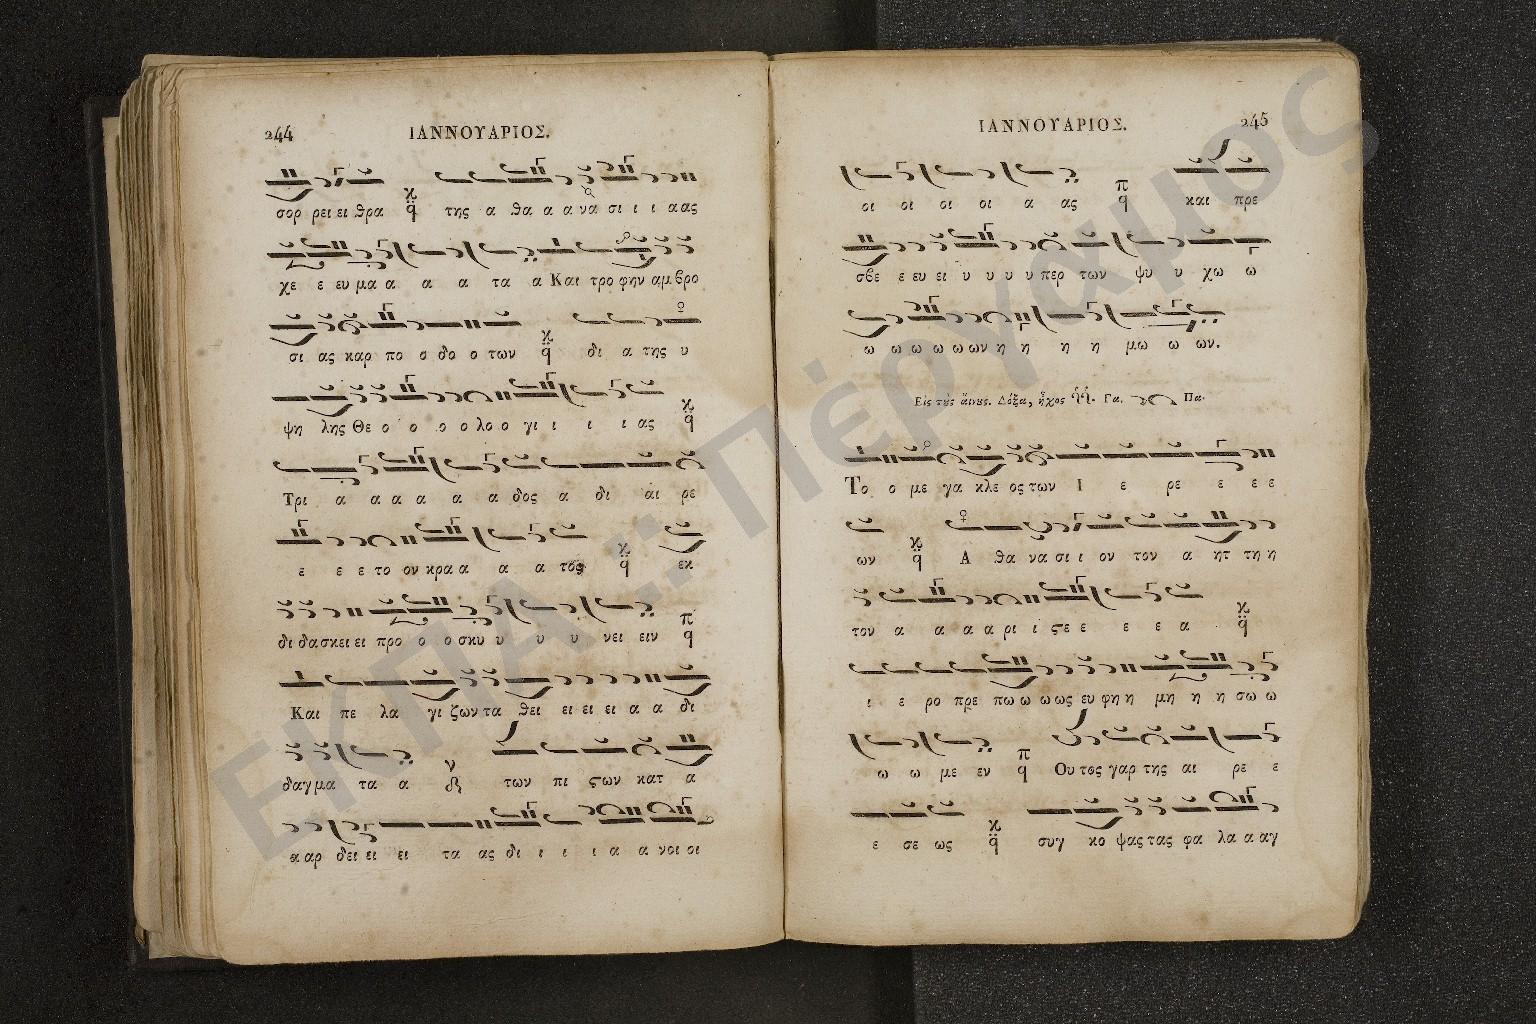 244 ΙΑΝΝΟΥΑΡΙΟΣ.
σορ ρει ει θρα της α θα α α να σι ι ι α ας
χε ε ευ μα α α α τα α Και τρο φην αμ βρο
σι ας καρ πο ο δο ο των δι α της υ
ψη λης Θε ο ο ο ο λο ο γι ι ι ι ας
Τρι α α α α α α δος α δι αι ρε
ε ε ε το ον κρα α α α τος εκ
δι δασκει ει προ ο ο σκυ υ υ υ νει ειν
Και πε λα γι ζων τα θει ει ει ει α α δι
δαγμα τα α των πι ςων κατ α
α αρ δει ει ει τα ας δι ι ι ι α α νοι οι
ΙΑΝΝΟΥΑΡΙΟΣ. 245
οι οι οι οι α ας και πρε
σβε ε ευ ει υ υ υ υ περ των ψυ υ χω ω
ω ω ω ω ω ων η η η η μω ω ων.
Εἰς τὺς αἴνυς. Δόξα, ἦχος Γα. Πα.
Το ο με γα κλε ος των Ι ε ρε ε ε ε
ων Α θα να σι ι ον τον α ητ τη η
τον α α α α ρι ι ςε ε ε ε α
ι ε ρο πρε πω ω ω ως ευ φη η μη η η σω ω
ω ω με εν Ου τος γαρ της αι ρε ε
ε σε ως συγ κο ψας τας φα λα α αγ
ΕΚΠΑ :: Πέργαμος